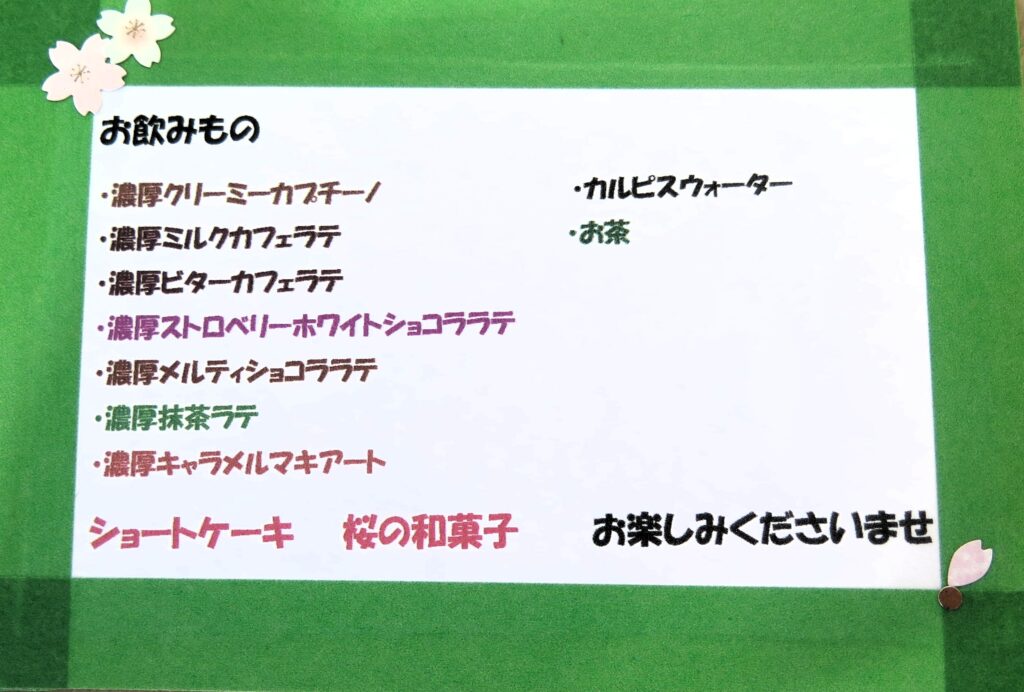 お飲みもの
・濃厚クリーミーカプチーノ
・濃厚ミルクカフェラテ
・濃厚ビターカフェラテ
・濃厚ストロベリーホワイトショコララテ
・濃厚メルティショコララテ
・濃厚抹茶ラテ
・濃厚キャラメルマキアート
・カルピスウォーター
・お茶
ショートケーキ 桜の和菓子 お楽しみくださいませ